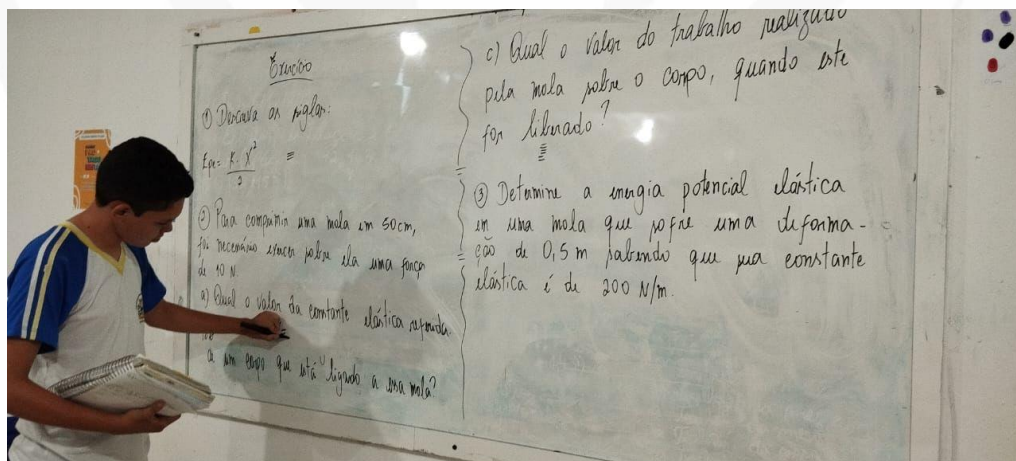 Exercício
① Descreva as siglas:
Epe = K . X²
2
② Para comprimir uma mola em 50cm,
foi necessário exercer sobre ela uma força
de 10 N.
a) Qual o valor da constante elástica referida
de um corpo que está ligado a essa mola?
c) Qual o valor do trabalho realizado
pela mola sobre o corpo, quando este
for liberado?
③ Determine a energia potencial elástica
em uma mola que sofre uma deforma-
ção de 0,5 m sabendo que sua constante
elástica é de 200 N/m.